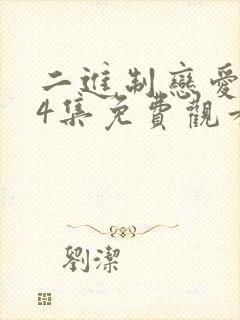 二進制戀愛
4集免費觀
劉潔